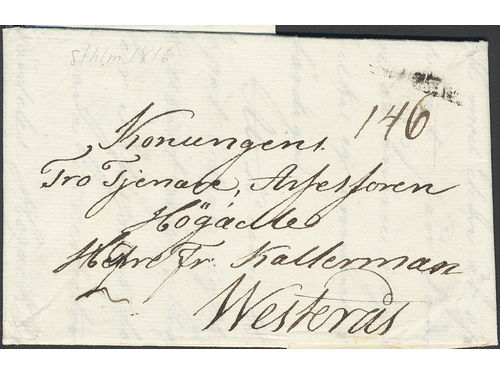 Sthlm 1816
146
Konungens
Tro Tjenare, Assessoren
Högädle
Herr Fr. Kallerman
Westerås